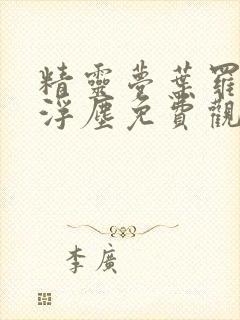 精靈夢葉羅
浮塵免費觀
李廣